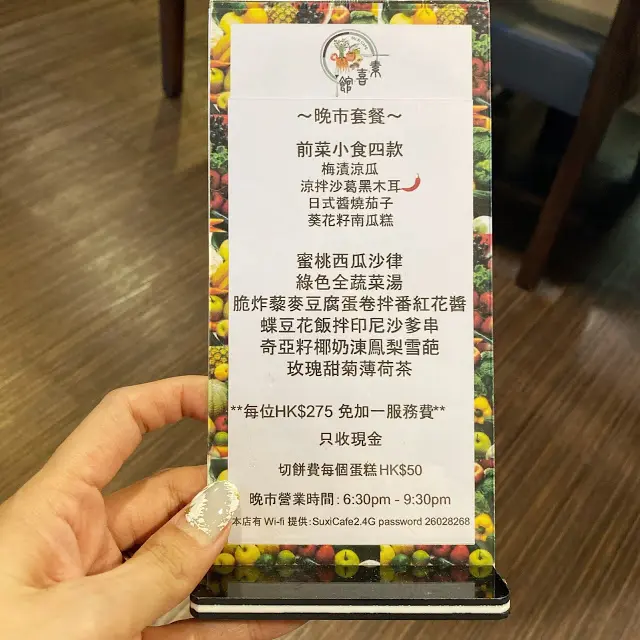 素喜館
～晚市套餐～
前菜小食四款
梅漬涼瓜
涼拌沙葛黑木耳
日式醬燒茄子
葵花籽南瓜糕
蜜桃西瓜沙律
綠色全蔬菜湯
脆炸藜麥豆腐蛋卷拌番紅花醬
蝶豆花飯拌印尼沙爹串
奇亞籽椰奶湅鳳梨雪葩
玫瑰甜菊薄荷茶
**每位HK$275 免加一服務費**
只收現金
切餅費每個蛋糕HK$50
晚市營業時間: 6:30pm - 9:30pm
本店有 Wi-fi 提供: SuxiCafe2.4G password 26028268